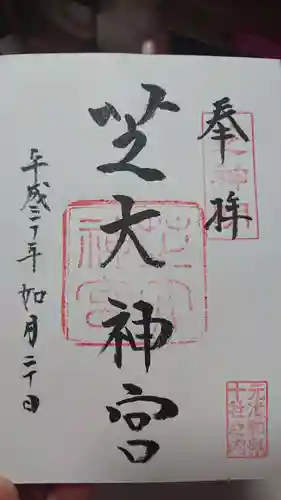 奉拝
芝大神宮
平成二十年 如月二十日
芝大神宮
元准勅祭
十社之内